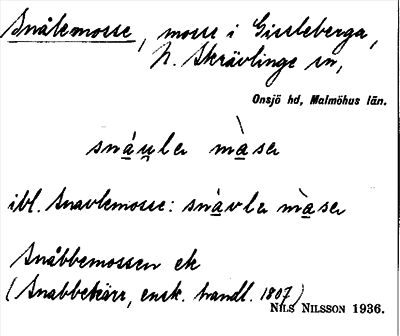 Snålemosse, mosse i Gissleberga,
N. Skrävlinge sn,
Onsjö hd, Malmöhus län.
snàu̯lɘ màsɘ
ibl. Snavlemosse: snàvlɘ màsɘ
Snåbbemossen ek
(Snabbekärr, ensk. handl. 1807)
NILS NILSSON 1936.